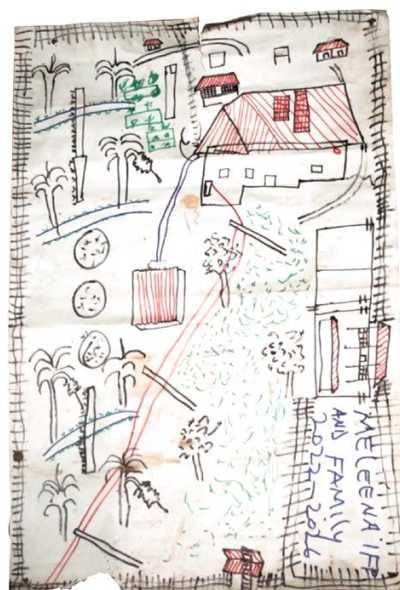 MELEENA
AND FAMILY
2022-2026